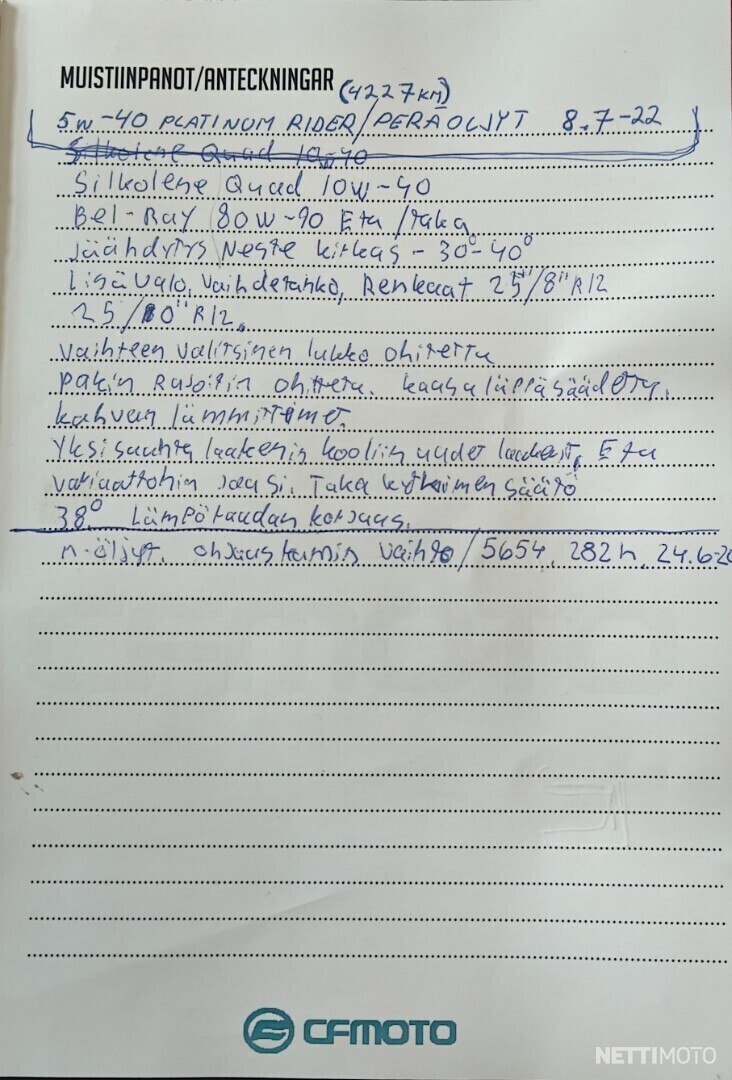 MUISTIINPANOT/ANTECKNINGAR (4227 KM)
5W-40 PLATINUM RIDER/PERÄÖLJYT 8.7-22
Silkolene Quad 10W-40
Silkolene Quad 10W-40
Bel-Ray 80W-90 Etu/taka
Jäähdytys Neste kirkas -30°-40°
Lisävalo, Vaihdetanko, Renkaat 25"/8" R12
25/10" R12.
Vaihteen valitsimen lukko ohitettu
Pakin Rajoitin ohitettu. kaasuläppä säädetty.
kahvan lämmittimet.
Yksisuunta laakerin kooliin uudet laakerit, Etu
variaattorin jousi. Taka kytkimen säätö
38° Lämpötaudan korjaus.
m-öljyt. ohjaustannin vaihto/5654, 282h, 24.6-20
CFMOTO
NETTIMOTO